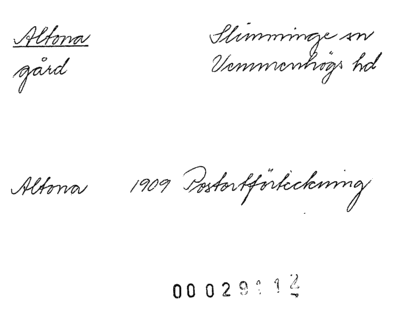 Altona Slimminge sn
gård Vemmenhögs hd
Altona 1909 Postortförteckning
00029112